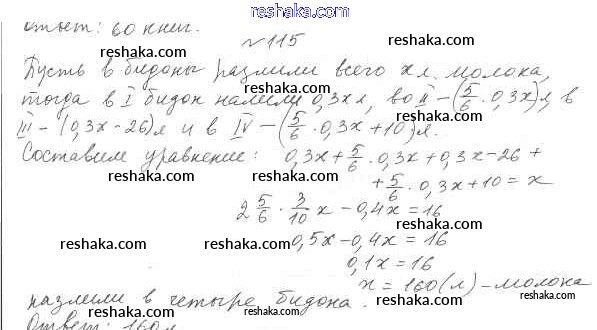 reshaka.com
Ответ: 60 книг.
№115
Пусть в бидоны разлили всего x л. молока,
тогда в I бидон налили 0,3x л, во II – (5/6 · 0,3x) л, в
III – (0,3x – 26) л и в IV – (5/6 · 0,3x + 10) л.
Составим уравнение: 0,3x + 5/6 · 0,3x + 0,3x – 26 +
+ 5/6 · 0,3x + 10 = x
2 5/6 · 3/10 x – 0,4x = 16
0,5x – 0,4x = 16
0,1x = 16
x = 160 (л) – молока
разлили в четыре бидона.
Ответ: 160 л
reshaka.com
reshaka.com
reshaka.com
reshaka.com
reshaka.com
reshaka.com
reshaka.com
reshaka.com
reshaka.com
reshaka.com
reshaka.com
reshaka.com